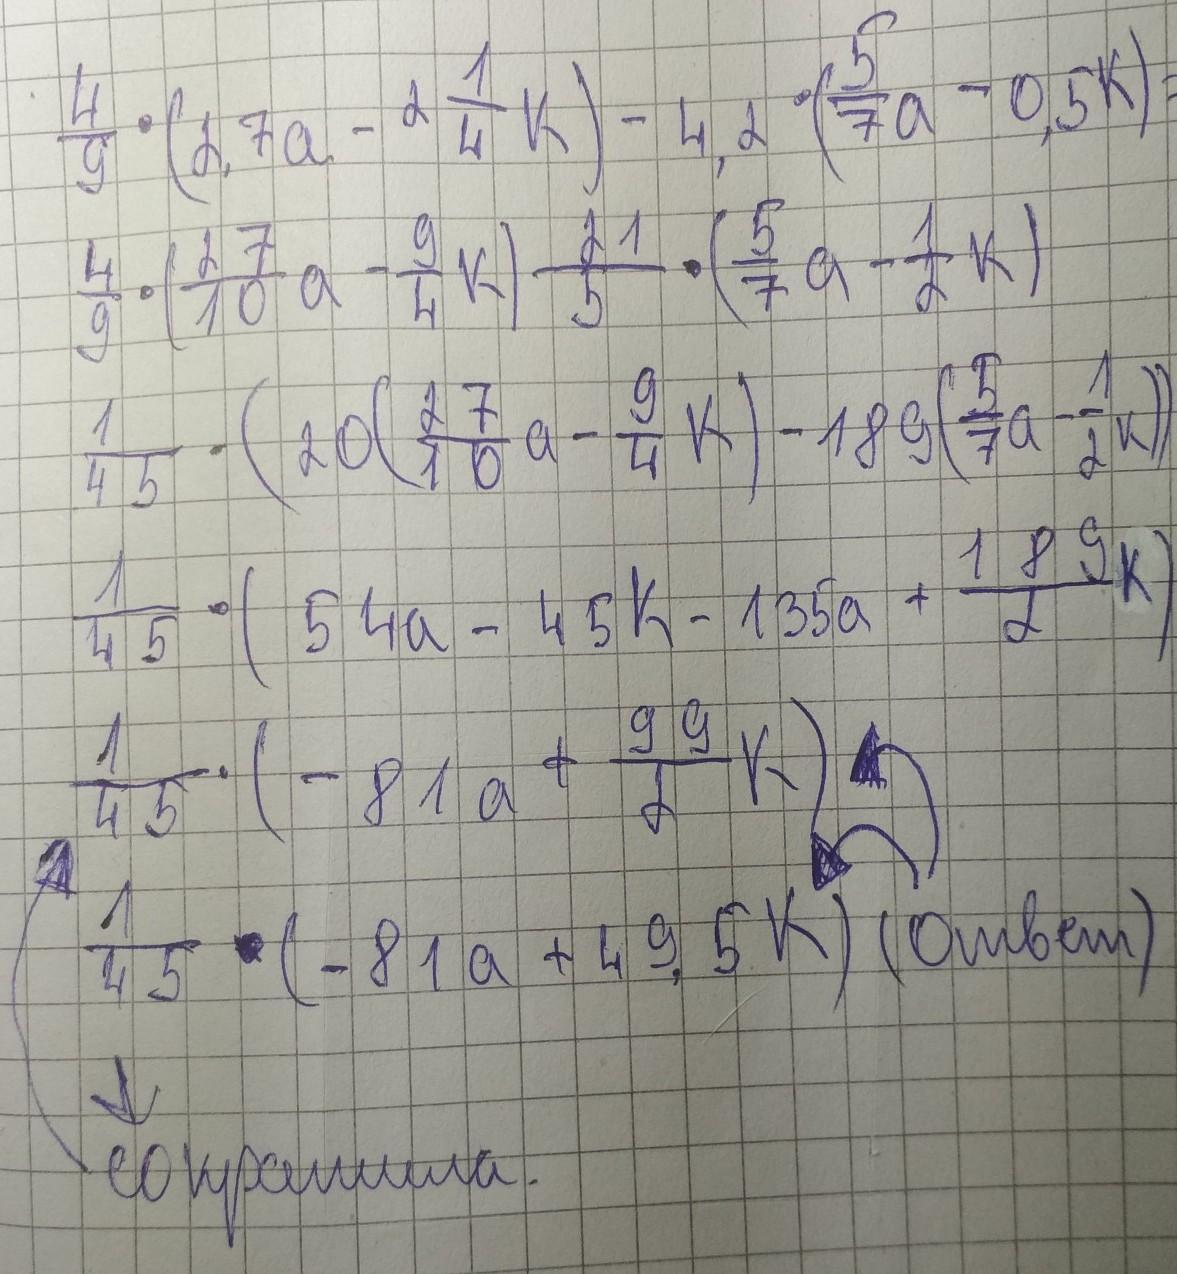 4/9 · (2,7a - 2 1/4 K) - 4,2 · (5/7 a - 0,5K) =
4/9 · (27/10 a - 9/4 K) - 21/5 · (5/7 a - 1/2 K)
1/45 · (20(27/10 a - 9/4 K) - 189(5/7 a - 1/2 K))
1/45 · (54a - 45K - 135a + 189/2 K)
1/45 · (-81a + 99/2 K)
1/45 · (-81a + 49,5K) (Ответ)
сократила.